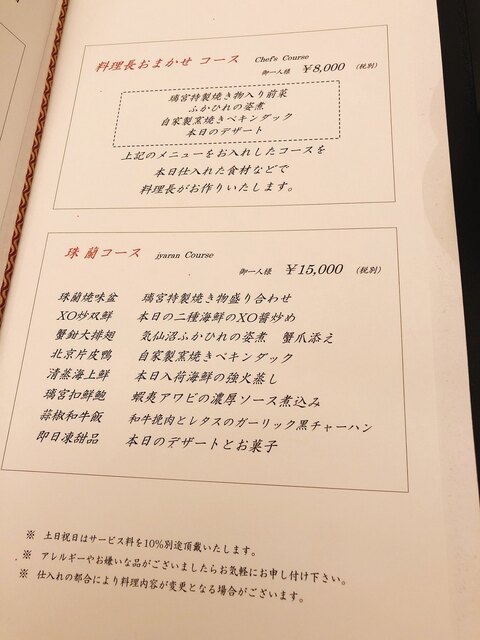 料理長おまかせ コース Chef's Course
御一人様 ¥8,000 (税別)
璃宮特製焼き物入り前菜
ふかひれの姿煮
自家製窯焼きペキンダック
本日のデザート
上記のメニューをお入れしたコースを
本日仕入れた食材などで
料理長がお作りいたします。
珠蘭コース jyaran Course
御一人様 ¥15,000 (税別)
珠蘭焼味盆 璃宮特製焼き物盛り合わせ
XO炒双鮮 本日の二種海鮮のXO醤炒め
蟹鉗大排翅 気仙沼ふかひれの姿煮 蟹爪添え
北京片皮鴨 自家製窯焼きペキンダック
清蒸海上鮮 本日入荷海鮮の強火蒸し
璃宮扣鮮鮑 蝦夷アワビの濃厚ソース煮込み
蒜椒和牛飯 和牛挽肉とレタスのガーリック黒チャーハン
即日凍甜品 本日のデザートとお菓子
※ 土日祝日はサービス料を10%別途頂戴いたします。
※ アレルギーやお嫌いな品がございましたらお気軽にお申し付け下さい。
※ 仕入れの都合により料理内容が変更となる場合がございます。